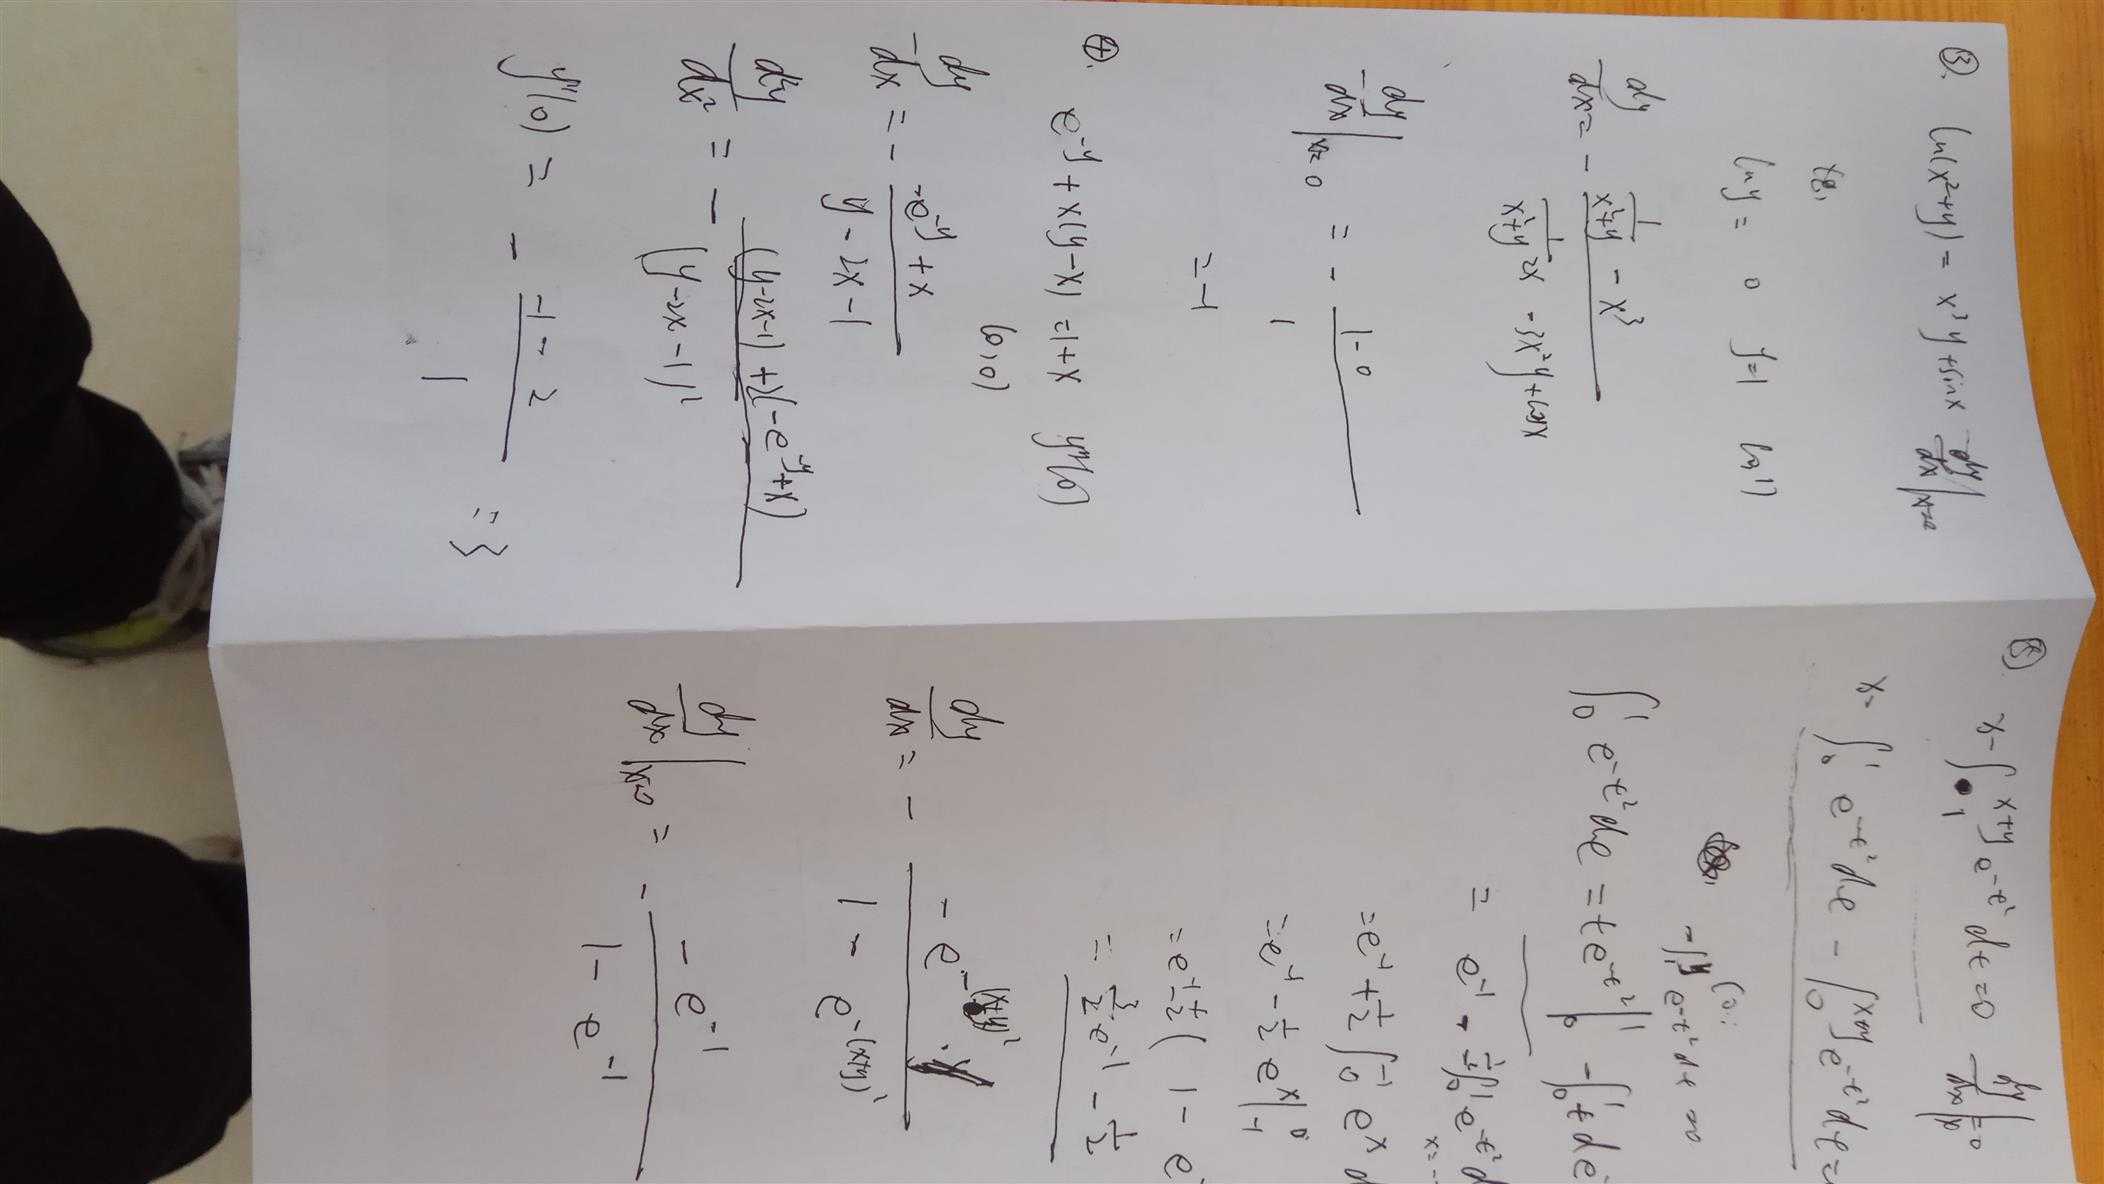 ③. ln(x²+y) = x³y + sinx dy/dx|x=0
ln y = 0 y=1 ln1
dy/dx = - (1/(x²+y) - x³) / (1/(x²+y) 2x - 3x²y + cosx)
dy/dx|x=0 = - (1-0) / 1
= -1
④. e^-y + x(y-x) = 1+x y''(0)
(0,0)
dy/dx = - (-e^-y + x) / (y - 2x - 1)
d²y/dx² = - ((y-2x-1) + 2(-e^-y + x)) / (y-2x-1)²
y''(0) = - (-1 - 2) / 1 = 3
⑤. x - ∫₁^(x+y) e^-t² dt = 0 dy/dx|x=0
x - ∫₀¹ e^-t² dt - ∫₀^(x+y) e^-t² dt =
- ∫₁^y e^-t² dt = 0
∫₀¹ e^-t² dt = t e^-t² |₀¹ - ∫₀¹ t de
= e^-1 - ½ ∫₀¹ e^-t² d
= e^-1 + ½ ∫₀^-1 e^x d
= e^-1 - ½ e^x |₋₁⁰
= e^-1 - ½ ( 1 - e
= 3/2 e^-1 - ½
dy/dx = - (- e^-(x+y)²) / (1 - e^-(x+y)²)
dy/dx|x=0 = - (- e^-1) / (1 - e^-1)